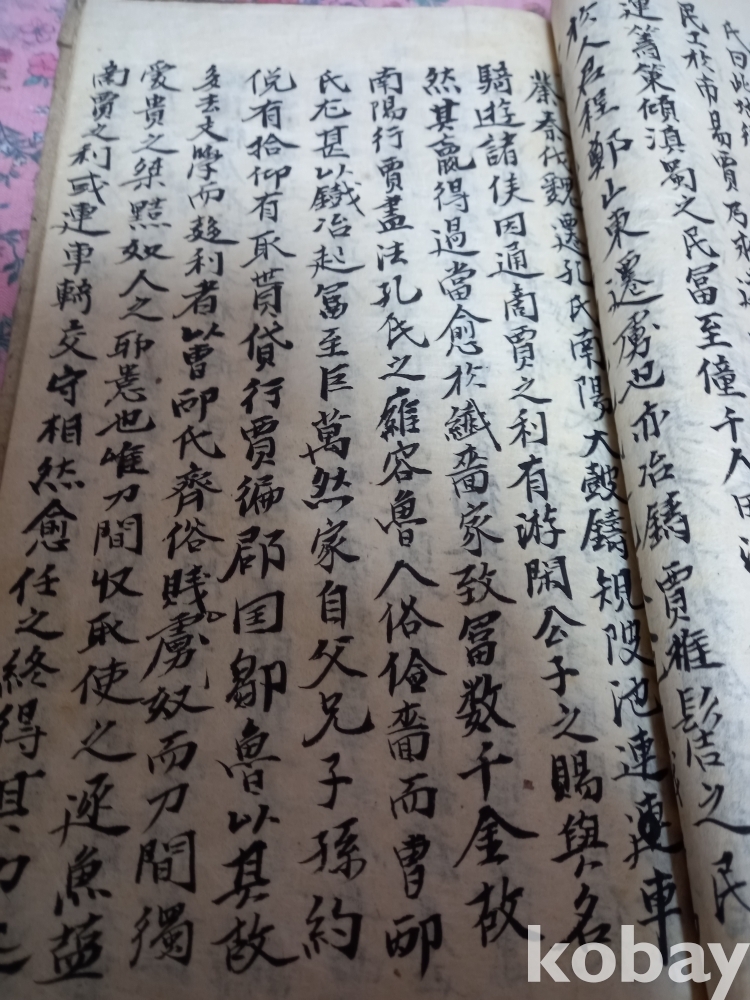 氏曰此地
民工於市易賈乃求遠
運籌策傾滇蜀之民冨至僮千人田池
於人君程鄭山東遷虜也亦冶鑄賈椎髻之民
秦伐魏遷孔氏南陽大皷鑄規陂池連連車
騎遊諸侯因通商賈之利有游閑公子之賜與名
然其贏得過當愈於纖嗇家致冨数千金故
南陽行賈盡法孔氏之雍容魯人俗儉嗇而曹邴
氏尤甚以鐵冶起冨至巨萬然家自父兄子孫約
俛有拾仰有取貰貸行賈徧郡国鄒魯以其故
多去文學而趍利者以曹邴氏齊俗賎虜奴而刀間獨
愛貴之桀黠奴人之所患也唯刀間収取使之逐魚塩
商賈之利或連車騎交守相然愈任之終得其力
kobay